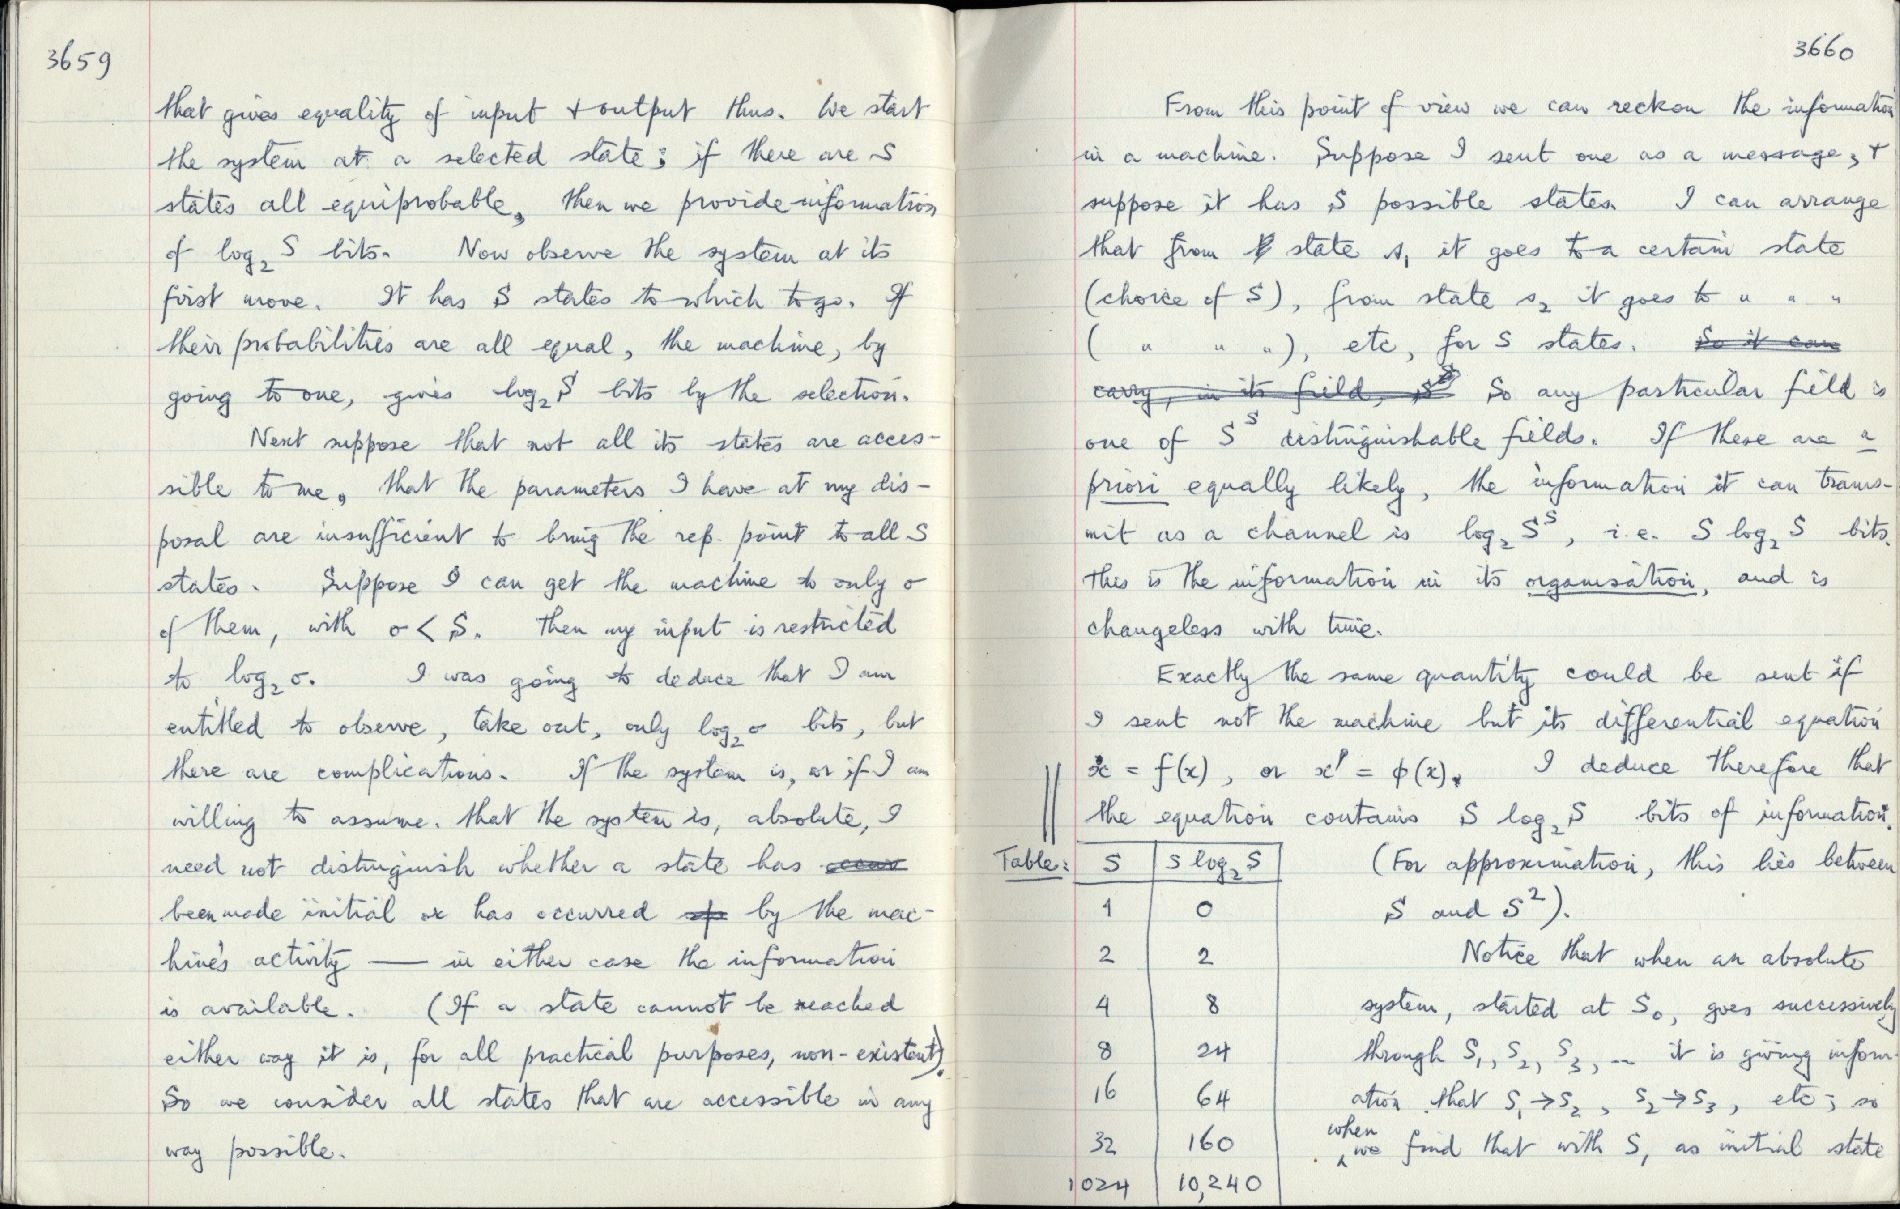 3659
that gives equality of input + output thus. We start
the system at a selected state; if there are S
states all equiprobable, then we provide information
of log₂ S bits. Now observe the system at its
first move. It has S states to which to go. If
their probabilities are all equal, the machine, by
going to one, gives log₂ S bits by the selection.
Next suppose that not all its states are acces-
sible to me, that the parameters I have at my dis-
posal are insufficient to bring the rep. point to all S
states. Suppose I can get the machine to only σ
of them, with σ < S. Then my input is restricted
to log₂ σ. I was going to deduce that I am
entitled to observe, take out, only log₂ σ bits, but
there are complications. If the system is, or if I am
willing to assume that the system is, absolute, I
need not distinguish whether a state has occur
been made initial or has occurred by the mac-
hine's activity — in either case the information
is available. (If a state cannot be reached
either way it is, for all practical purposes, non-existent).
So we consider all states that are accessible in any
way possible.
3660
From this point of view we can reckon the information
in a machine. Suppose I sent one as a message, +
suppose it has S possible states. I can arrange
that from state s₁ it goes to a certain state
(choice of S), from state s₂ it goes to " " "
( " " "), etc, for S states. So it can
carry, in its field, Sˢ So any particular field is
one of Sˢ distinguishable fields. If these are a
priori equally likely, the information it can trans-
mit as a channel is log₂ Sˢ, i.e. S log₂ S bits.
This is the information in its organisation, and is
changeless with time.
Exactly the same quantity could be sent if
I sent not the machine but its differential equation
ẋ = f(x), or x' = φ(x). I deduce therefore that
the equation contains S log₂ S bits of information.
Table: S | S log₂ S
1 | 0
2 | 2
4 | 8
8 | 24
16 | 64
32 | 160
1024 | 10,240
(For approximation, this lies between
S and S²).
Notice that when an absolute
system, started at S₀, goes successively
through S₁, S₂, S₃, ... it is giving inform-
ation that S₁→S₂, S₂→S₃, etc; so
when
we find that with S₁ as initial state